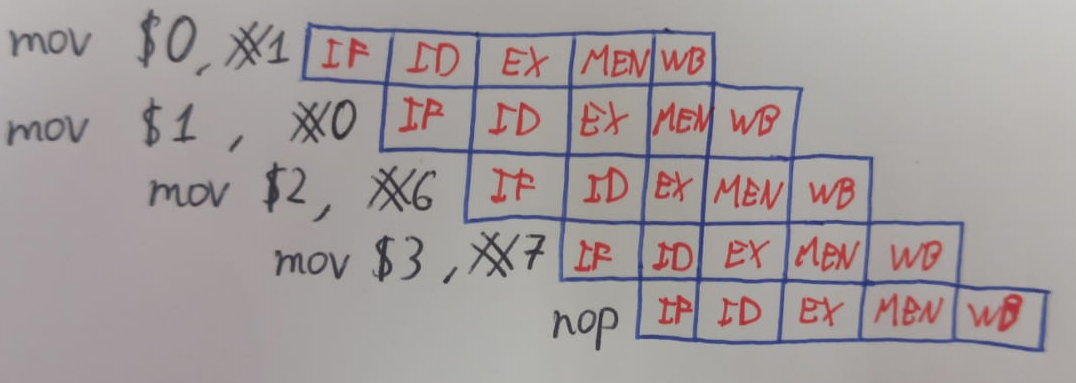 mov $0, 1 IF ID EX MEN WB
mov $1, 0 IF ID EX MEN WB
mov $2, 6 IF ID EX MEN WB
mov $3, 7 IF ID EX MEN WB
nop IF ID EX MEN WB